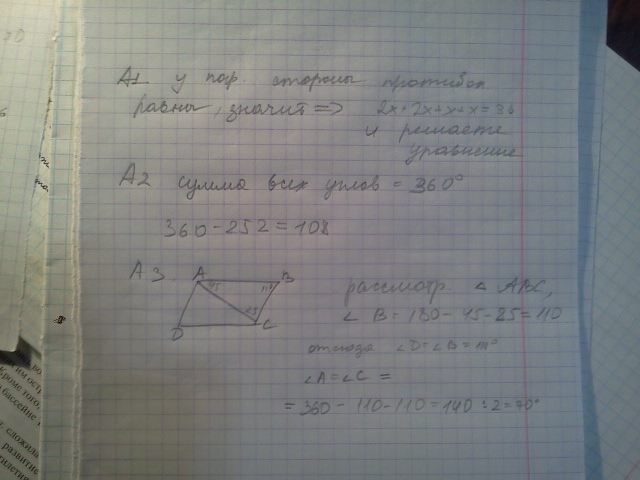 А1 у пар. стороны противоп.
равны, значит => 2x+2x+x+x=36
и решаете
уравнение
А2 сумма всех углов = 360°
360-252=108
А3
A B
45 110
25
D C
рассмотр. ∆ ABC,
∠ B = 180-45-25=110
отсюда ∠D=∠B=110°
∠A=∠C =
= 360-110-110=140:2=70°
Кроме того,
бассейне
сложила
развитие